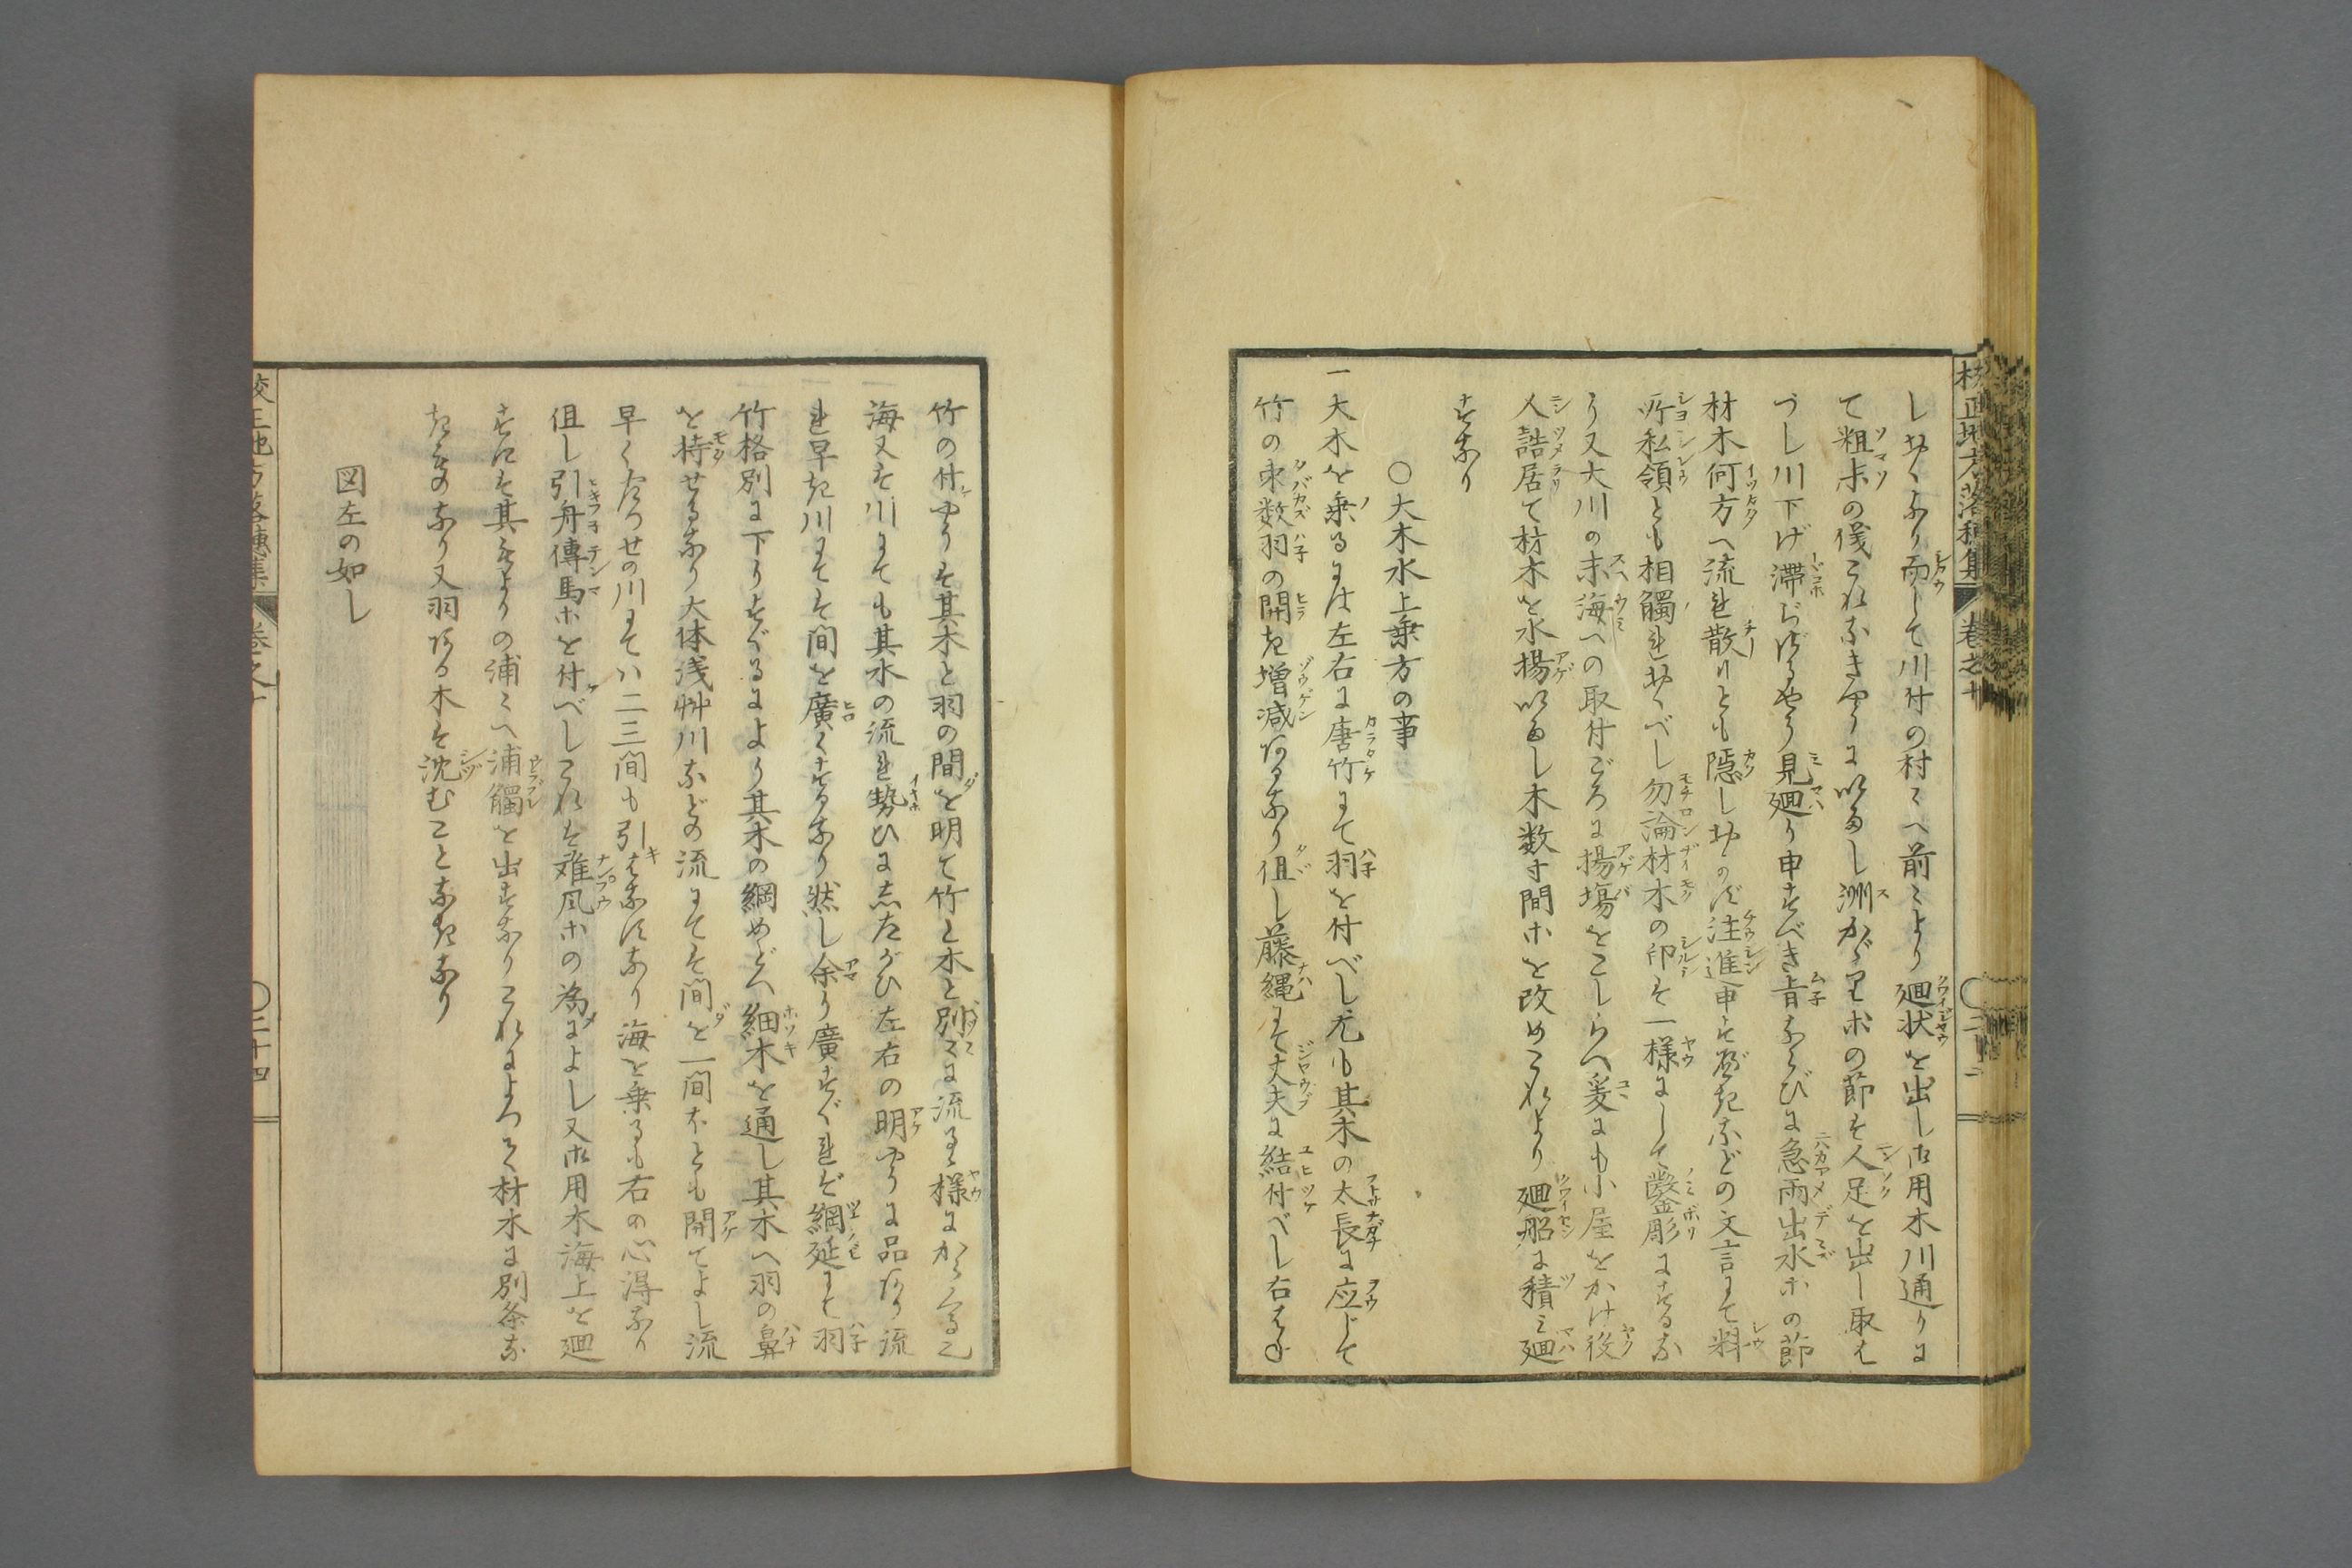 校正地方落穂集 巻之十
しおくなり而して川付の村々へ前々より廻状を出し御用木川通りに
て粗末の儀これなきやうにいたし洲がゝり等の節は人足を出し取は
づし川下げ滞らざるやう見廻り申すべき旨ならびに急雨出水等の節
材木何方へ流れ散りとも隠しおかず注進申すべきなどの文言にて料
所私領とも相觸れおくべし勿論材木の印は一様にして鑿彫にするな
り又大川の末海への取付ごろに揚場をこしらへ爰にも小屋をかけ役
人詰居て材木を水揚いたし木数寸間等を改めこれより廻船に積み廻
すなり
○大木水上乗方の事
一大木を乗るには左右に唐竹にて羽を付べし尤も其木の太長に応じて
竹の束数羽の開き増減あるなり但し藤縄にて丈夫に結付べし右はね
竹の付やうは其木と羽の間を明て竹と木と別々に流るゝ様にからくる也
海又は川にても其水の流れ勢ひにしたがひ左右の明やうに品あり流
れ早き川にては間を廣くするなり然し余り廣すぐれば綱延にて羽
竹格別に下りすぐるにより其木の綱めどへ細木を通し其木へ羽の鼻
を持せるなり大体浅艸川などの流にては間を一間ほども開てよし流
早くたつせの川にてハ二三間も引はなすなり海を乗るも右の心得なり
但し引舟傳馬等を付べしこれは難風等の為によし又御用木海上を廻
すには其もよりの浦々へ浦觸を出すなりこれによつて材木に別条な
きものなり又羽ある木は沈むことなきなり
図左の如し
校正地方落穂集 巻之十 ○二十四